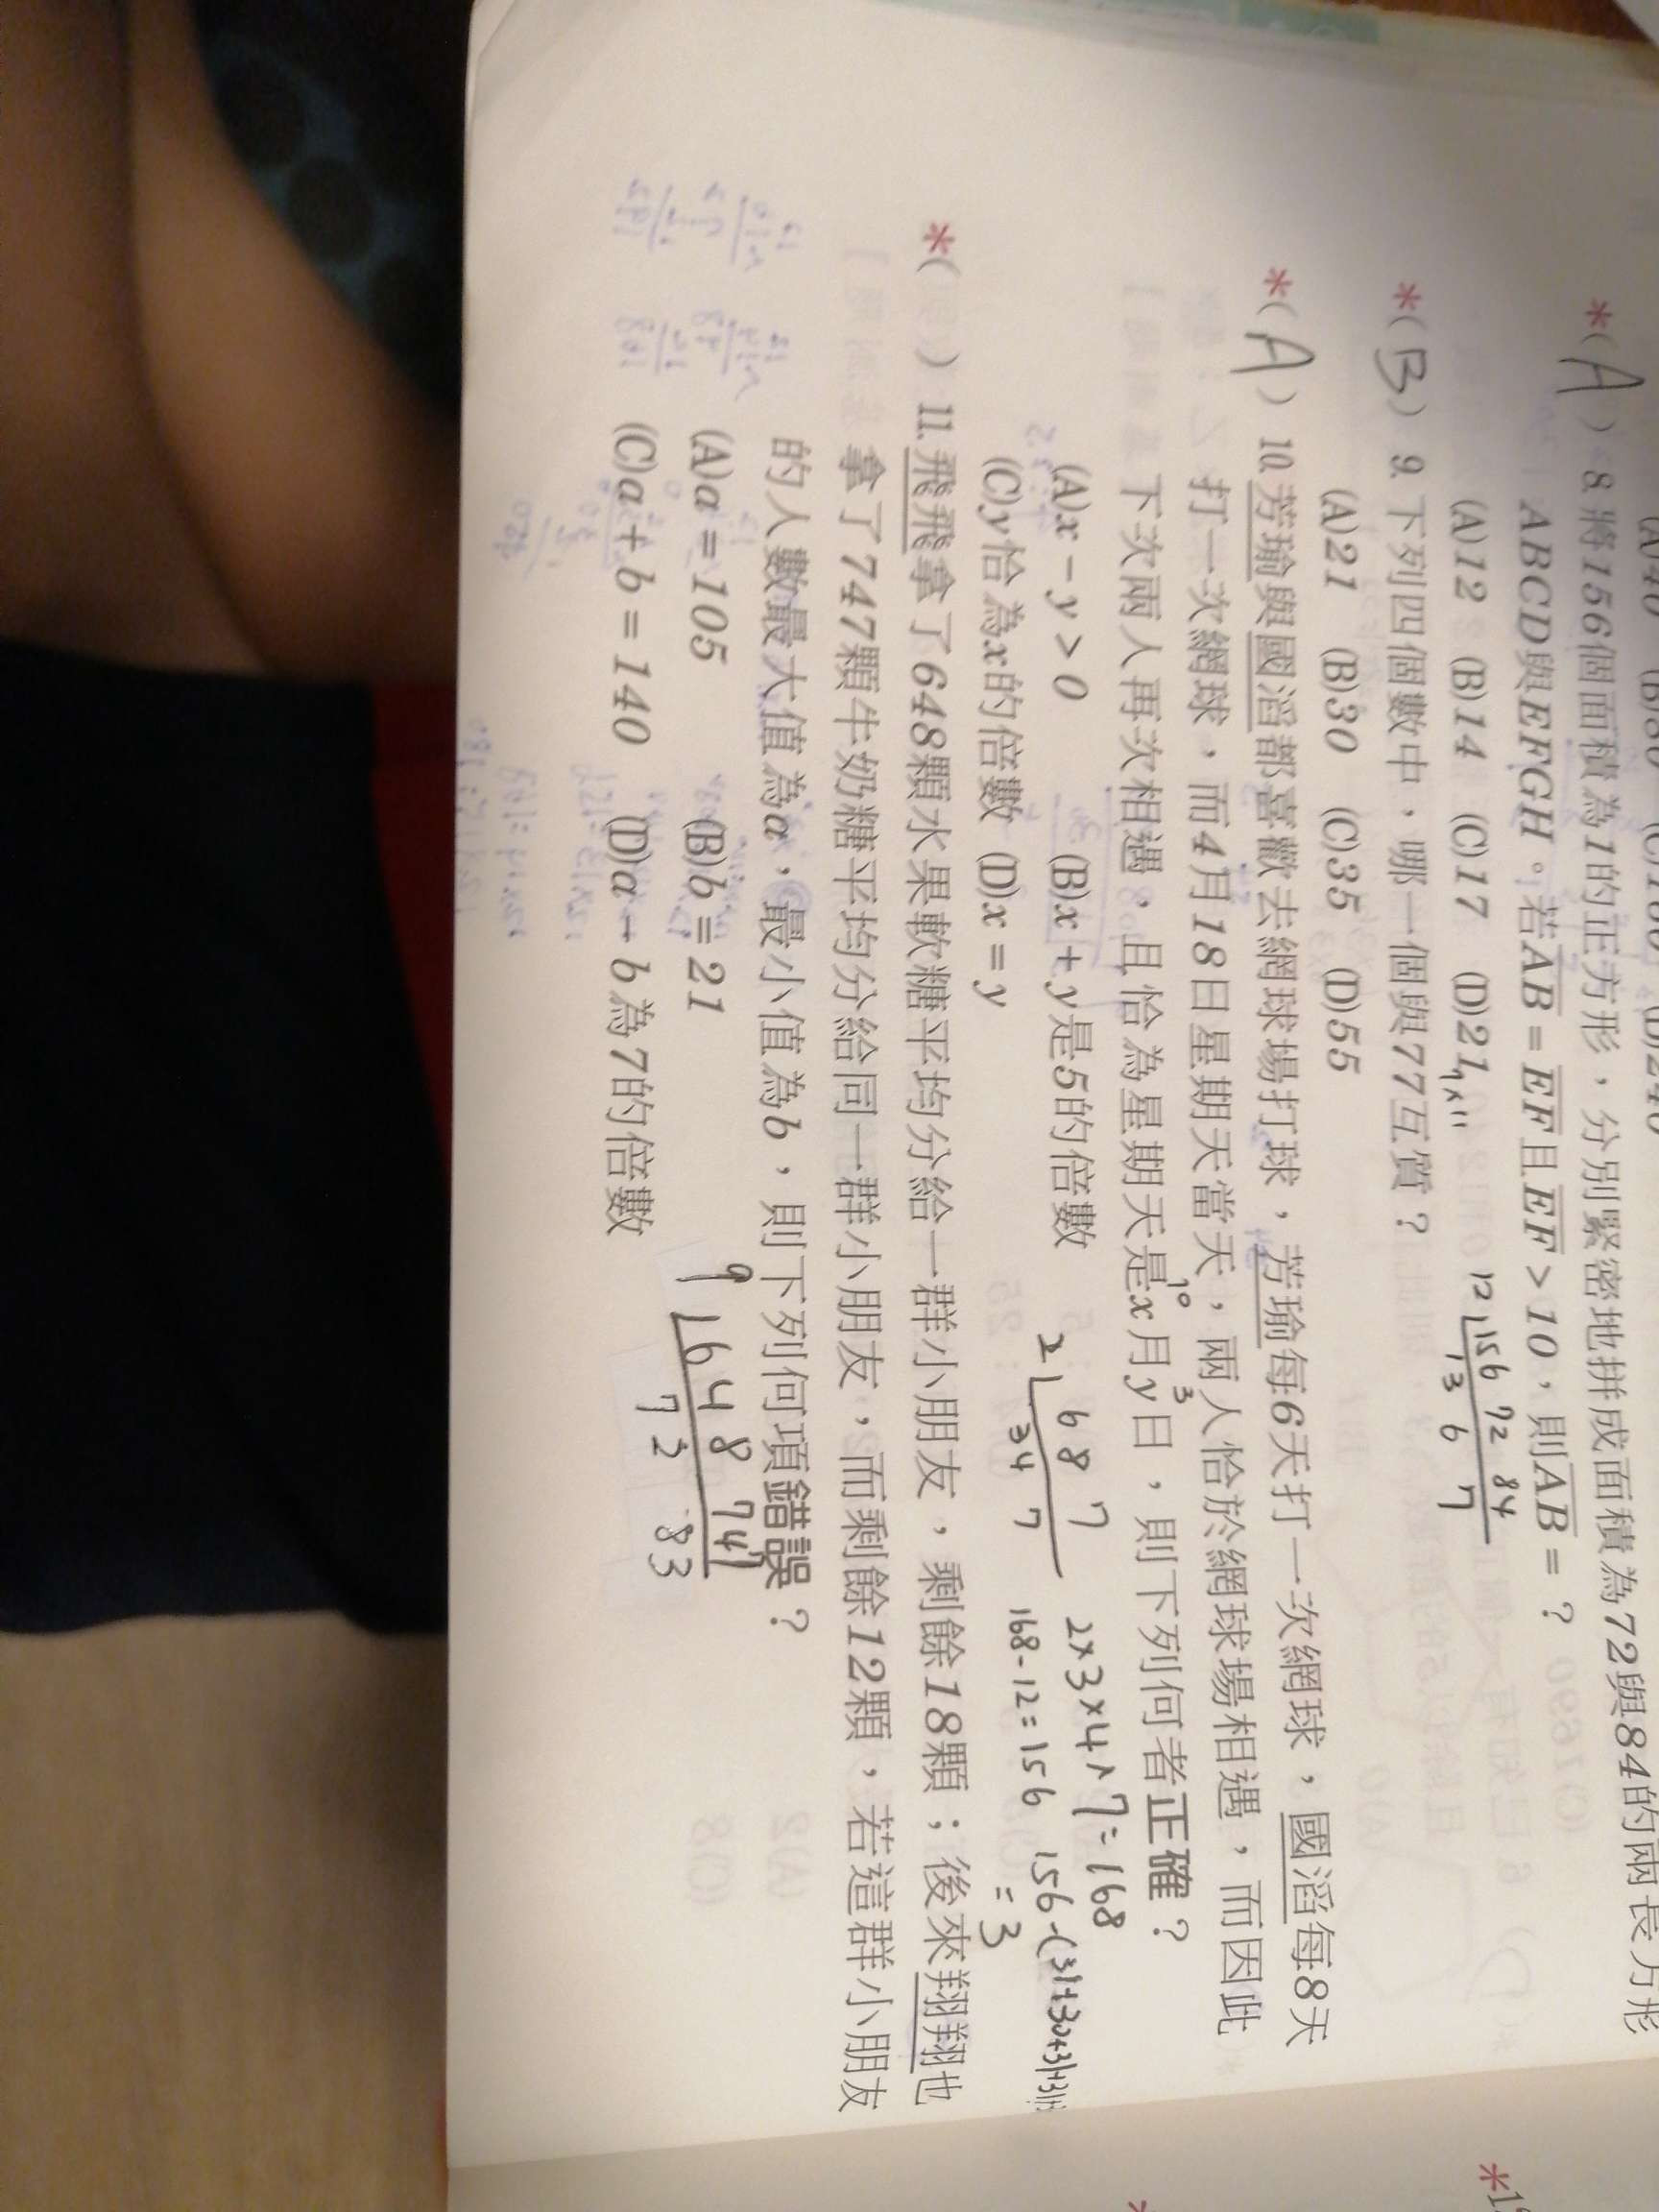 *(A) 8. 將156個面積為1的正方形，分別緊密地拼成面積為72與84的兩長方形
ABCD與EFGH。若AB=EF且EF>10，則AB=？
(A)12 (B)14 (C)17 (D)21
7×11
12 156 72 84
13 6 7
*(B) 9. 下列四個數中，哪一個與77互質？
(A)21 (B)30 (C)35 (D)55
*(A) 10. 芳瑜與國滔都喜歡去網球場打球，芳瑜每6天打一次網球，國滔每8天
打一次網球，而4月18日星期天當天，兩人恰於網球場相遇，而因此
下次兩人再次相遇，且恰為星期天是x月y日，則下列何者正確？
10 3
(A)x-y>0 (B)x+y是5的倍數
(C)y恰為x的倍數 (D)x=y
2 6 8 7
3 4 7
2×3×4×7=168
168-12=156
=3
*( ) 11. 飛飛拿了648顆水果軟糖平均分給一群小朋友，剩餘18顆；後來翔翔也
拿了747顆牛奶糖平均分給同一群小朋友，而剩餘12顆，若這群小朋友
的人數最大值為a，最小值為b，則下列何項錯誤？
(A)a=105 (B)b=21
(C)a+b=140 (D)a-b為7的倍數
9 648 747
72 83